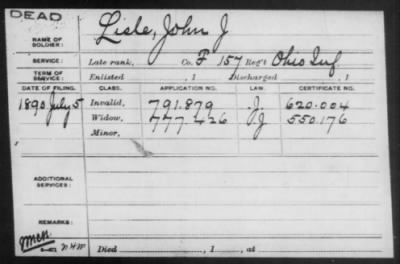 DEAD
NAME OF SOLDIER: Lisle, John J
SERVICE: Late rank, Co. F 157 Reg't Ohio Inf
TERM OF SERVICE: Enlisted , 1 Discharged , 1
DATE OF FILING. CLASS. APPLICATION NO. LAW. CERTIFICATE NO.
1890 July 5 Invalid, 791.879 J. 620.004
Widow, 777.426 J 550176
Minor,
ADDITIONAL SERVICES:
REMARKS:
Died , 1 , at